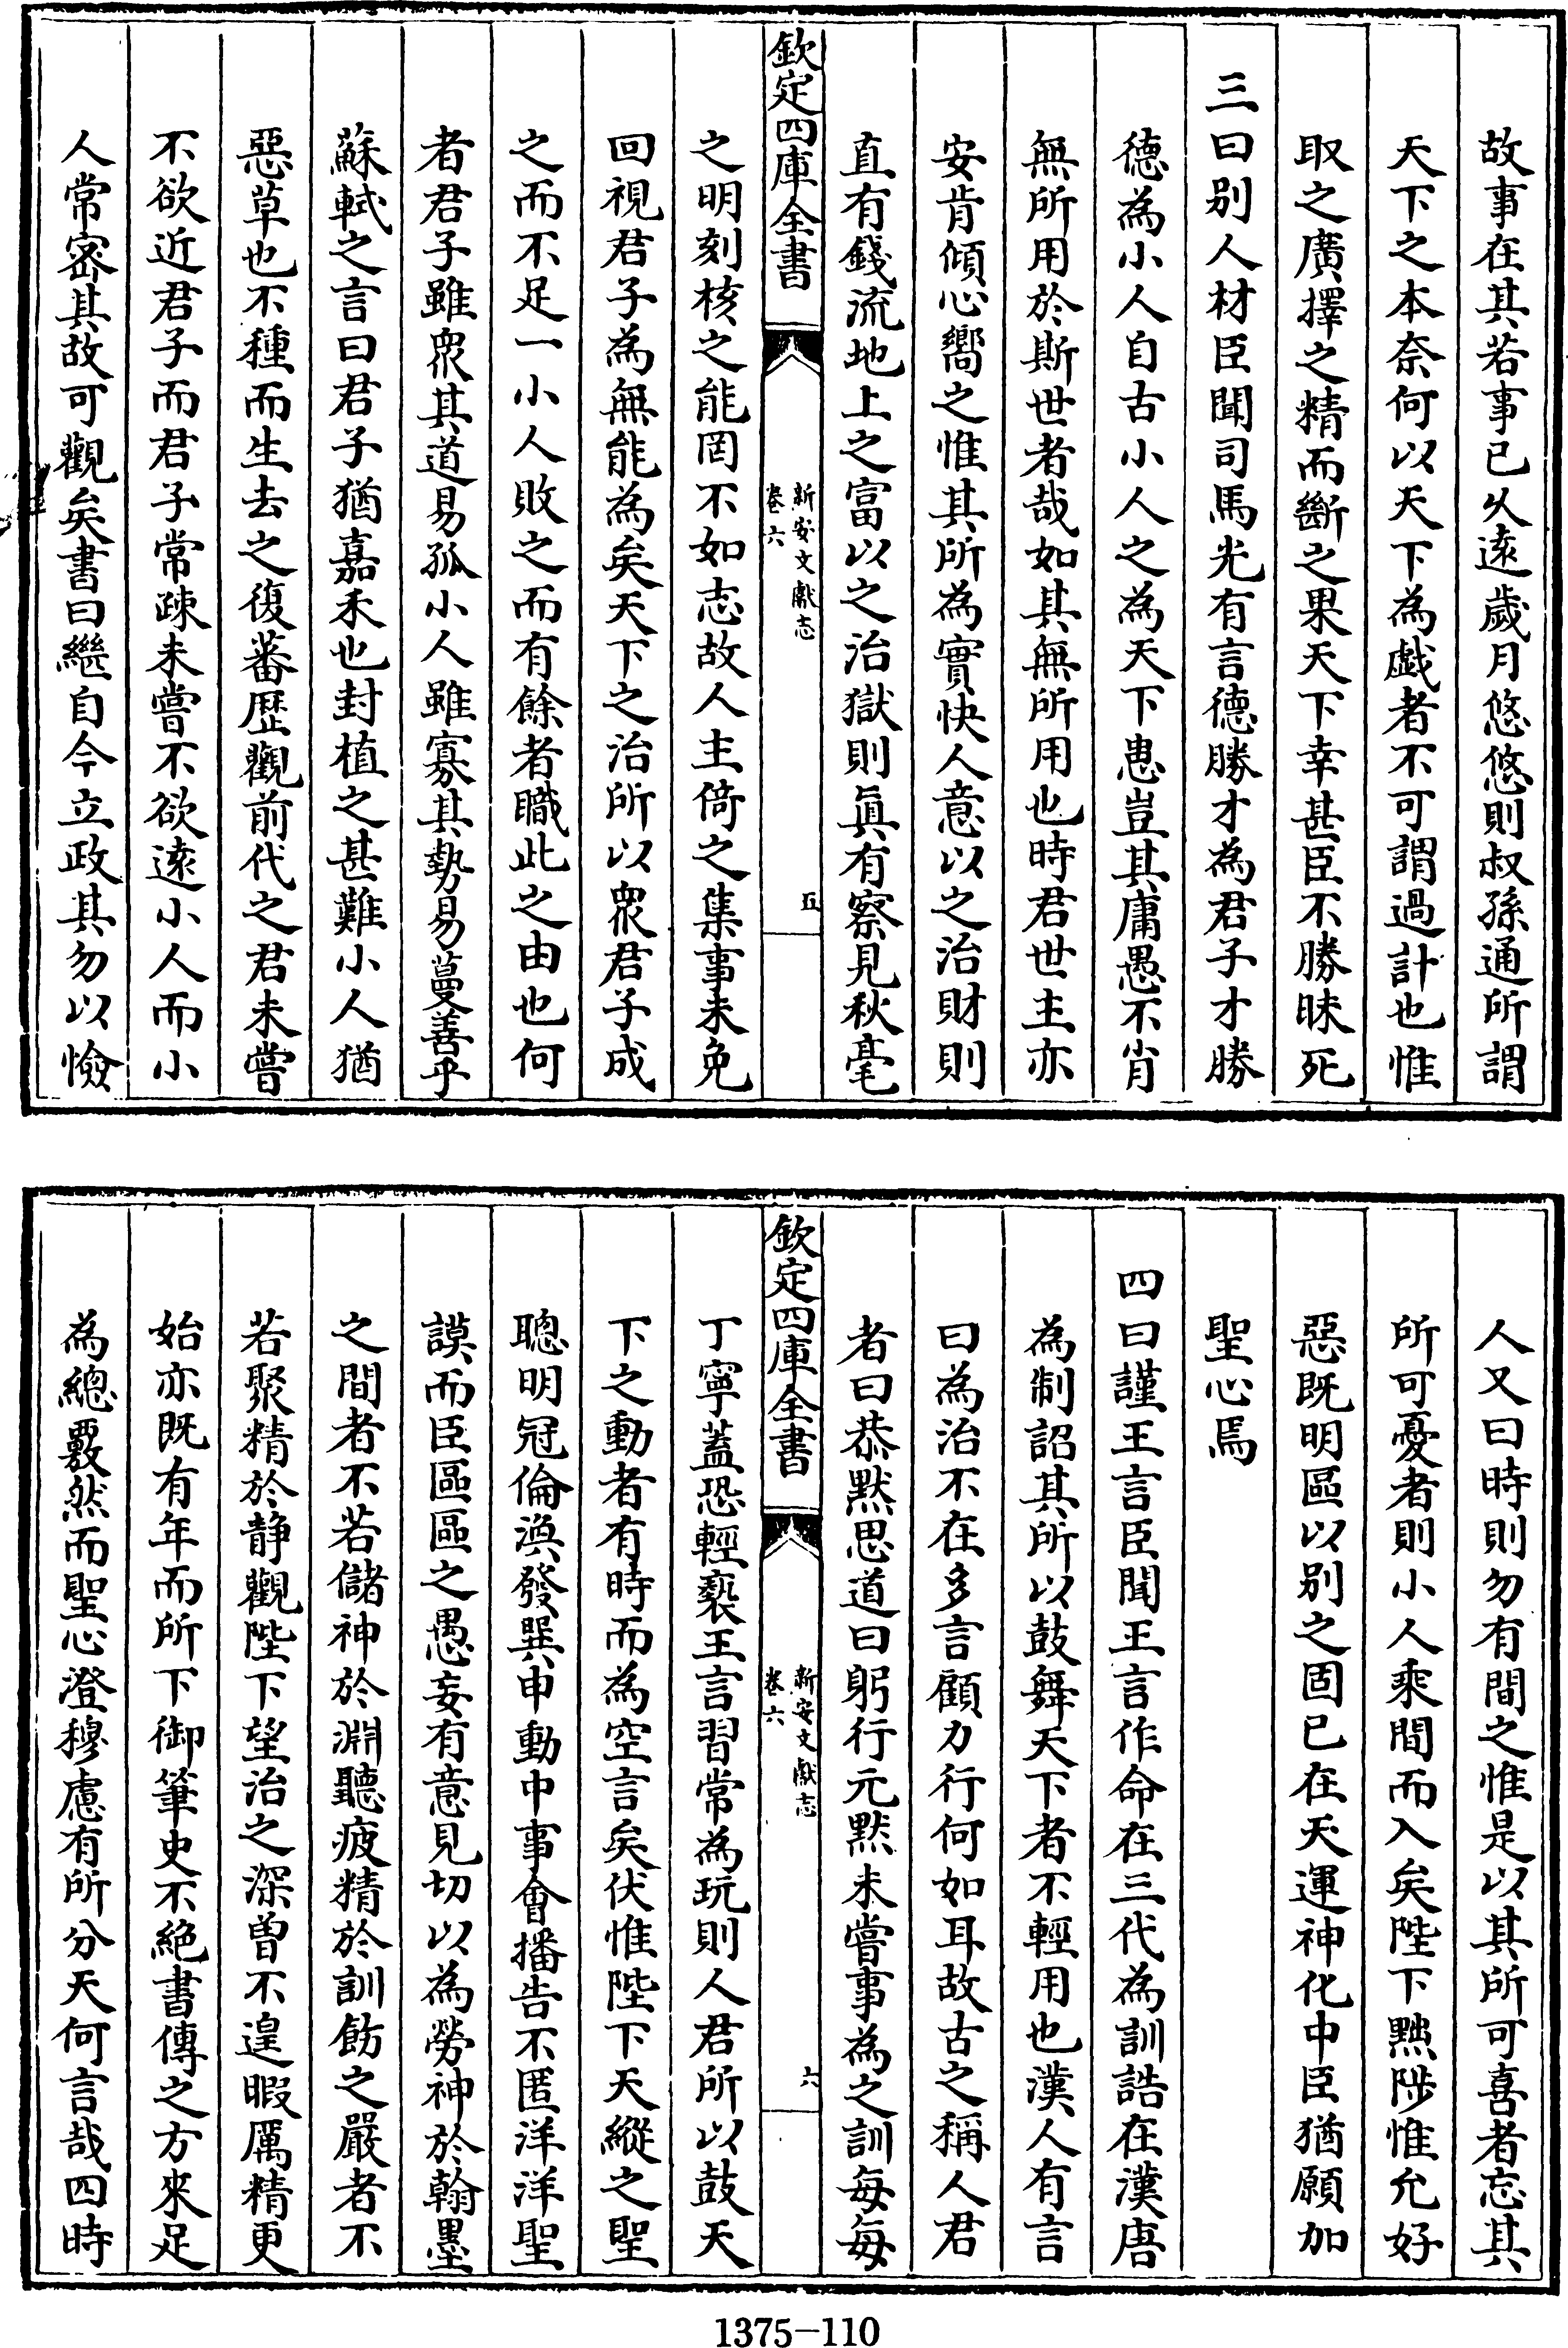 故事在其若事已乆逺歲月悠悠則叔孫通所謂
天下之本奈何以天下為戯者不可謂過計也惟
取之廣擇之精而斷之果天下幸甚臣不勝昧死
三曰别人材臣聞司馬光有言德勝才為君子才勝
德為小人自古小人之為天下患豈其庸愚不肖
無所用於斯世者哉如其無所用也時君世主亦
安肯傾心嚮之惟其所為實快人意以之治財則
直有錢流地上之富以之治獄則眞有察見秋毫
欽定四庫全書
新安文獻志
卷六
五
之明刻核之能罔不如志故人主倚之集事未免
回視君子為無能為矣天下之治所以衆君子成
之而不足一小人敗之而有餘者職此之由也何
者君子雖衆其道易孤小人雖寡其勢易蔓善乎
蘇軾之言曰君子猶嘉禾也封植之甚難小人猶
惡草也不種而生去之復蕃歴觀前代之君未嘗
不欲近君子而君子常疎未嘗不欲逺小人而小
人常密其故可觀矣書曰繼自今立政其勿以憸
人又曰時則勿有間之惟是以其所可喜者忘其
所可憂者則小人乘間而入矣陛下黜陟惟允好
惡既明區以别之固已在天運神化中臣猶願加
聖心焉
四曰謹王言臣聞王言作命在三代為訓誥在漢唐
為制詔其所以鼓舞天下者不輕用也漢人有言
曰為治不在多言顧力行何如耳故古之稱人君
者曰恭默思道曰躬行元黙未嘗事為之訓每每
欽定四庫全書
新安文獻志
卷六
六
丁寧蓋恐輕褻王言習常為玩則人君所以鼓天
下之動者有時而為空言矣伏惟陛下天縱之聖
聰明冠倫渙發巽申動中事會播告不匿洋洋聖
謨而臣區區之愚妄有意見切以為勞神於翰墨
之間者不若儲神於淵聽疲精於訓飭之嚴者不
若聚精於靜觀陛下望治之深曽不遑暇厲精更
始亦既有年而所下御筆史不絶書傳之方來足
為總覈然而聖心澄穆慮有所分天何言哉四時
1375-110